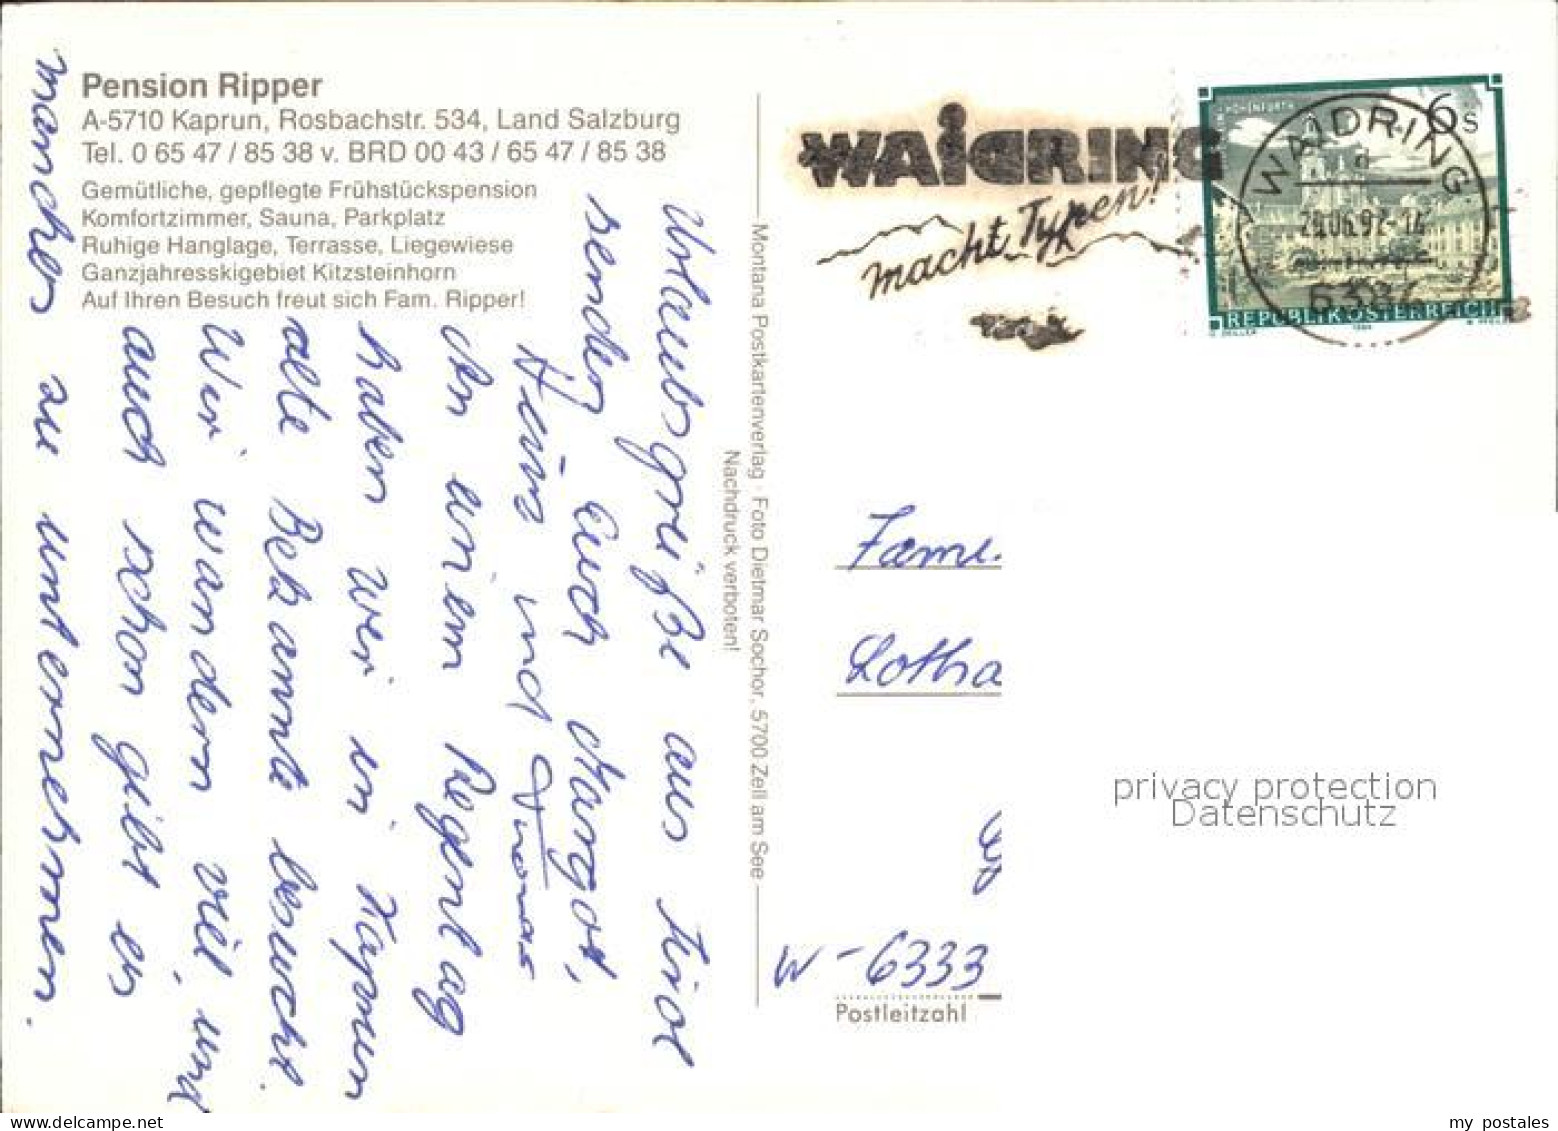 Pension Ripper
A-5710 Kaprun, Rosbachstr. 534, Land Salzburg
Tel. 0 65 47 / 85 38 v. BRD 00 43 / 65 47 / 85 38
Gemütliche, gepflegte Frühstückspension
Komfortzimmer, Sauna, Parkplatz
Ruhige Hanglage, Terrasse, Liegewiese
Ganzjahresskigebiet Kitzsteinhorn
Auf Ihren Besuch freut sich Fam. Ripper!
Urlaubsgrüße aus Tirol
senden Euch Margot,
Heinz und Thomas
An einem Regentag
haben wir in Kaprun
alte Bekannte besucht.
Wir wandern viel, und
auch schon gibt es
manches zu unternehmen.
Montana Postkartenverlag · Foto Dietmar Sochor, 5700 Zell am See
Nachdruck verboten!
WAIDRING
macht Typen!
6 S
WAIDRING
6384
REPUBLIK ÖSTERREICH
Fami
Lotha
W-6333
Postleitzahl
privacy protection
Datenschutz
my postales